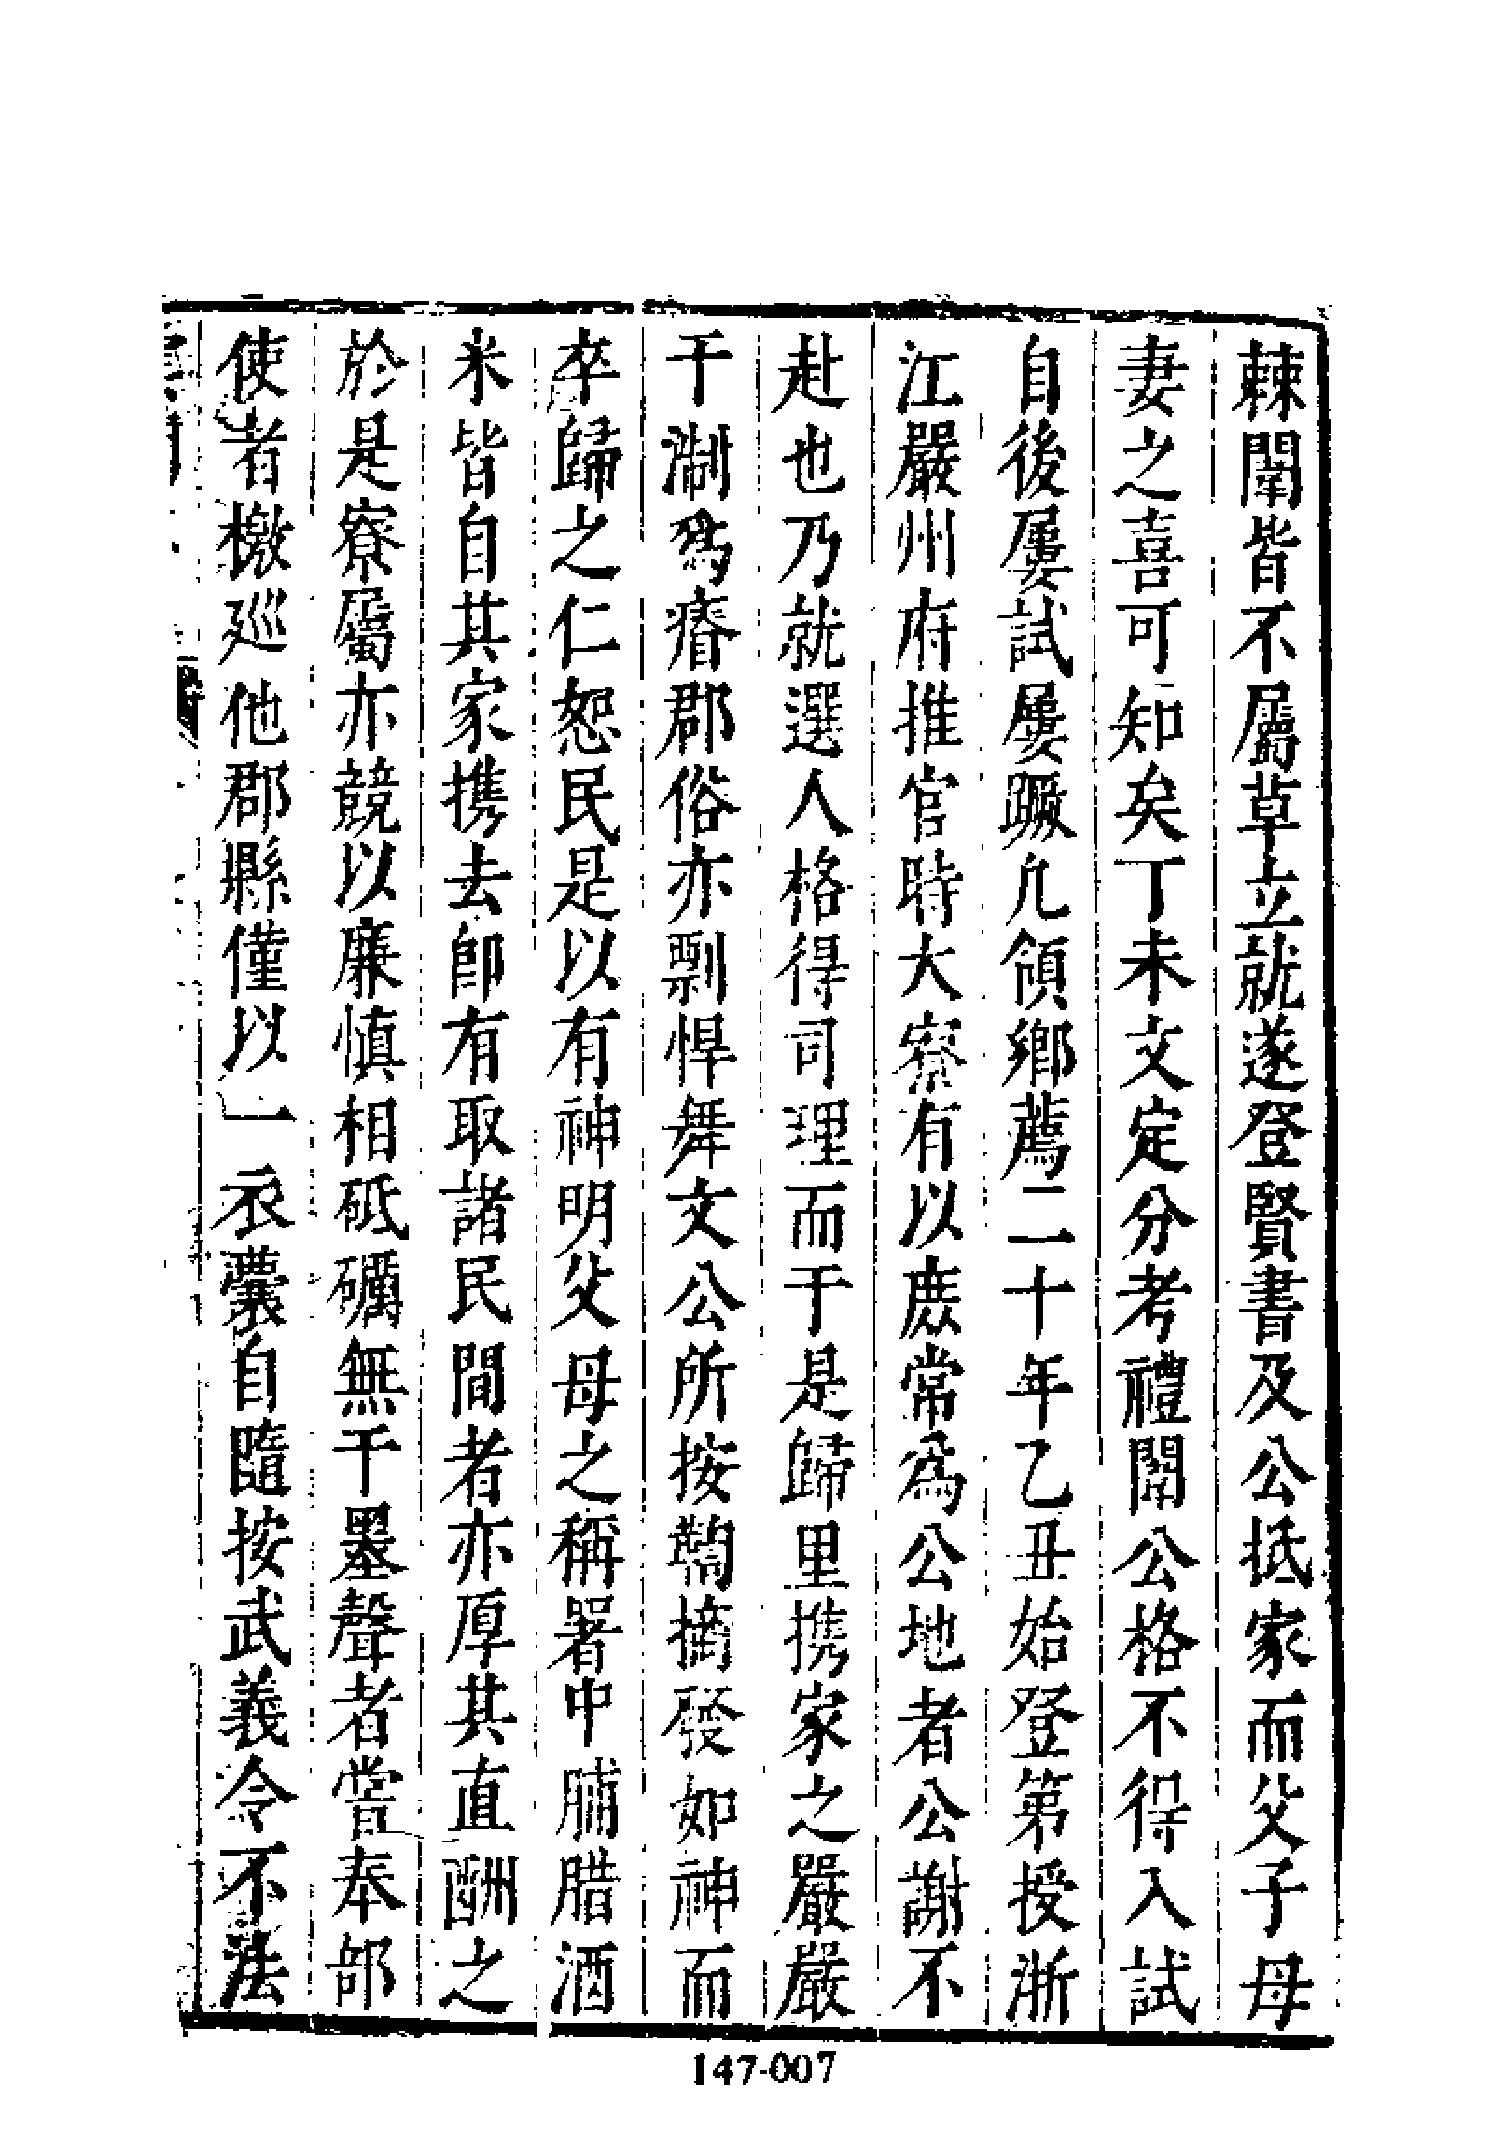 棘闈皆不屬草立就遂登賢書及公抵家而父子母
妻之喜可知矣丁未文定分考禮闈公格不得入試
自後屢試屢蹶凢領鄉薦二十年乙丑始登第授浙
江嚴州府推官時大寮有以庶常為公地者公謝不
赴也乃就選人格得司理而于是歸里携家之嚴嚴
于淛為瘠郡俗亦剽悍舞文公所按鞫摘發如神而
卒歸之仁恕民是以有神明父母之稱署中脯腊酒
米皆自其家携去卽有取諸民間者亦厚其直酬之
於是寮屬亦競以廉慎相砥礪無干墨聲者嘗奉部
使者檄廵他郡縣僅以一衣囊自隨按武義令不法
147-007